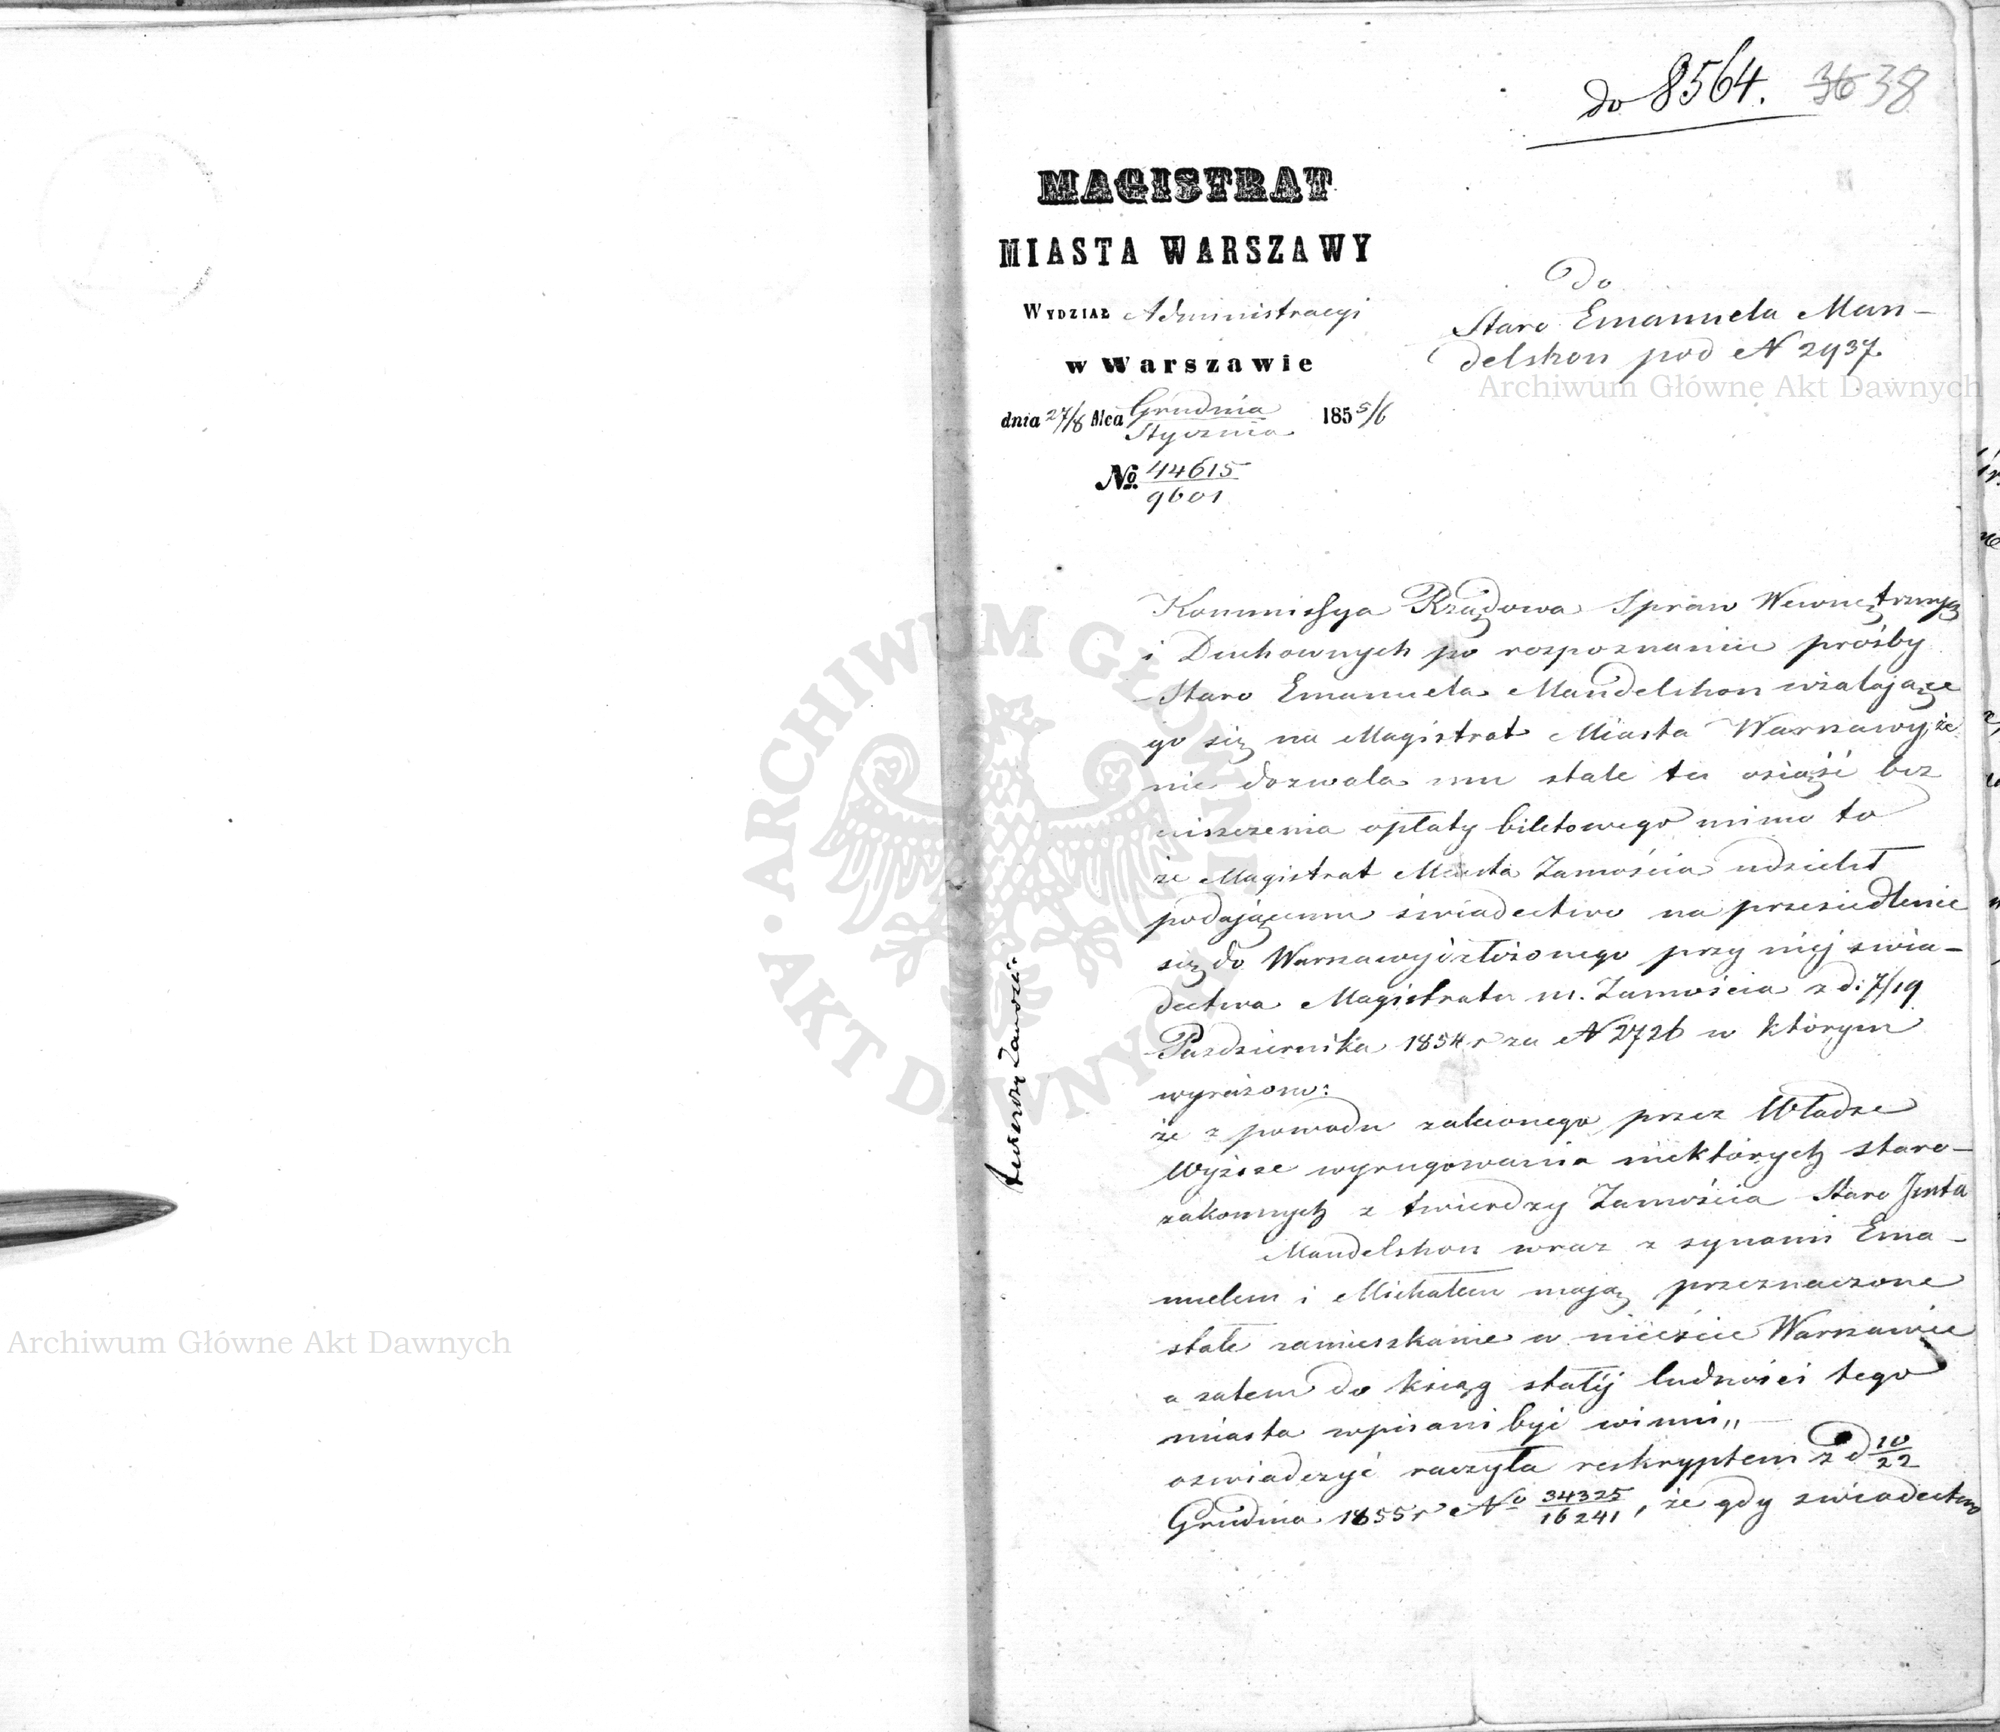 do 8564. 36 38
MAGISTRAT
MIASTA WARSZAWY
WYDZIAŁ Administracyi
w Warszawie
dnia 27/8 Mca Grudnia/Stycznia 1855/6
No. 44615/9601
Do
Staro Emanuela Man-
delshon pod N 2937.
Archiwum Główne Akt Dawnych
Kommissya Rządowa Spraw Wewnętrznych
i Duchownych po rozpoznaniu prośby
Staro Emanuela Mandelshon użalające
go się na Magistrat Miasta Warszawy, że
nie dozwala mu stale tu osiąść bez
uiszczenia opłaty biletowego mimo to
że Magistrat Miasta Zamościa udzielił
podającemu świadectwo na przesiedlenie
się do Warszawy, i złożonego przy niej świa-
dectwa Magistratu m. Zamościa z d: 7/19
Października 1854 r za N 2726 w którym
wyrażono:
że z powodu zaleconego przez Władze
Wyższe wyrugowania niektórych staro-
zakonnych z twierdzy Zamościa Staro Jenta
Mandelshon wraz z synami Ema-
nuelem i Michałem mają przeznaczone
stałe zamieszkanie w mieście Warszawie
a zatem do ksiąg stałej ludności tego
miasta wpisani być winni„
oświadczyć raczyła reskryptem z d 10/22
Grudnia 1855 r No 34325/16241, że gdy świadectwo
twierdzy Zamościa
ARCHIWUM GŁÓWNE AKT DAWNYCH
Archiwum Główne Akt Dawnych